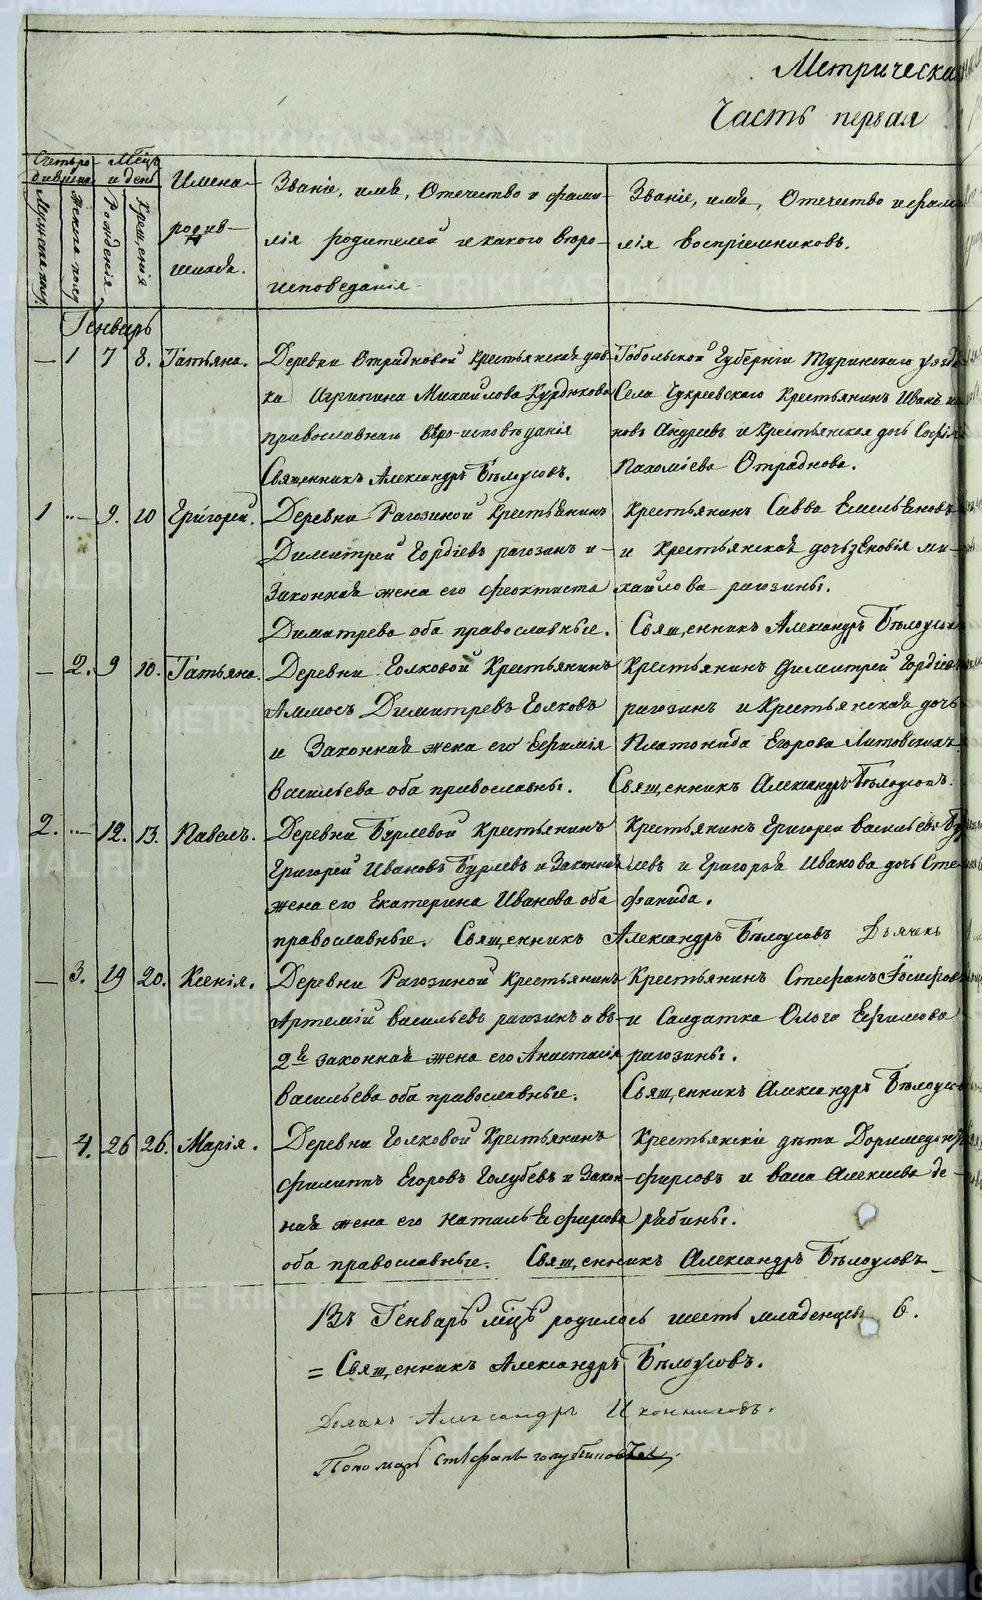 Метрическая
Часть первая
Счетъ ро-
дившихся
Мѣсяцъ
и день
Мужеска полу
Женска полу
Рожденія
Крещенія
Имена
родив-
шихся.
Званіе, имя, Отечество и фами-
лія родителей и какого вѣро-
исповеданія
Званіе, имя, Отечество и фами
лія воспріемниковъ.
Генварь
— 1 7 8. Татьяна.
Деревни Отрадновой крестьянская дѣв-
ка Агрипина Михайлова Курдюкова
православнаго вѣро-исповѣданія
Священникъ Александръ Бѣлоусовъ.
Тобольской Губерніи Туринскаго уѣзда
Села Чукреевскаго Крестьянинъ Иванъ
новъ Андреевъ и Крестьянская дочь Софія
Пахоміева Отраднова.
1 „— 9. 10 Григорей.
Деревни Рагозиной Крестьянинъ
Димитрей Гордіевъ рагозинъ и
Законная жена его Феоктиста
Димитрева оба православные.
Крестьянинъ Савва Емельяновъ
и Крестьянская дочь Зеновія ми-
хайлова рагозины.
Священникъ Александръ Бѣлоусовъ
— 2. 9 10. Татьяна.
Деревни Голковой Крестьянинъ
Аммосъ Димитревъ Голковъ
и Законная жена его Евфимія
Васильева оба православны.
Крестьянинъ Димитрей Гордіевъ
рагозинъ и Крестьянская дочь
Платонида Егорова Литовскихъ
Священникъ Александръ Бѣлоусовъ.
2. „— 12. 13. Павелъ.
Деревни Бурлевой Крестьянинъ
Григорей Ивановъ Бурлевъ и Законная
жена его Екатерина Иванова оба
православные. Священникъ Александръ Бѣлоусовъ Дьячекъ
Крестьянинъ Григорей Васильевъ Бур
левъ и Григорья Иванова дочь Сте
фанида.
— 3. 19 20. Ксенія.
Деревни Рагозиной Крестьянинъ
Артемій Васильевъ рагозинъ и въ
2й законная жена его Анастасія
Васильева оба православные.
Крестьянинъ Стефанъ
и Салдатка Ольга Ефимова
рагозины.
Священникъ Александръ Бѣлоусовъ
— 4. 26 26. Марія.
Деревни Голковой Крестьянинъ
Филиппъ Егоровъ Голубевъ и Закон-
ная жена его Наталья Фирсова
оба православные. Священникъ Александръ Бѣлоусовъ
Крестьянскіе дѣти Доримедонтъ
Фирсовъ и Васа Алексеева де-
рябины.
Въ Генварѣ мцѣ родилось шесть младенцевъ 6.
= Священникъ Александръ Бѣлоусовъ.
Дьячекъ Александръ Иконниковъ.
Пономарь Стефанъ
METRIKI.GASO-URAL.RU